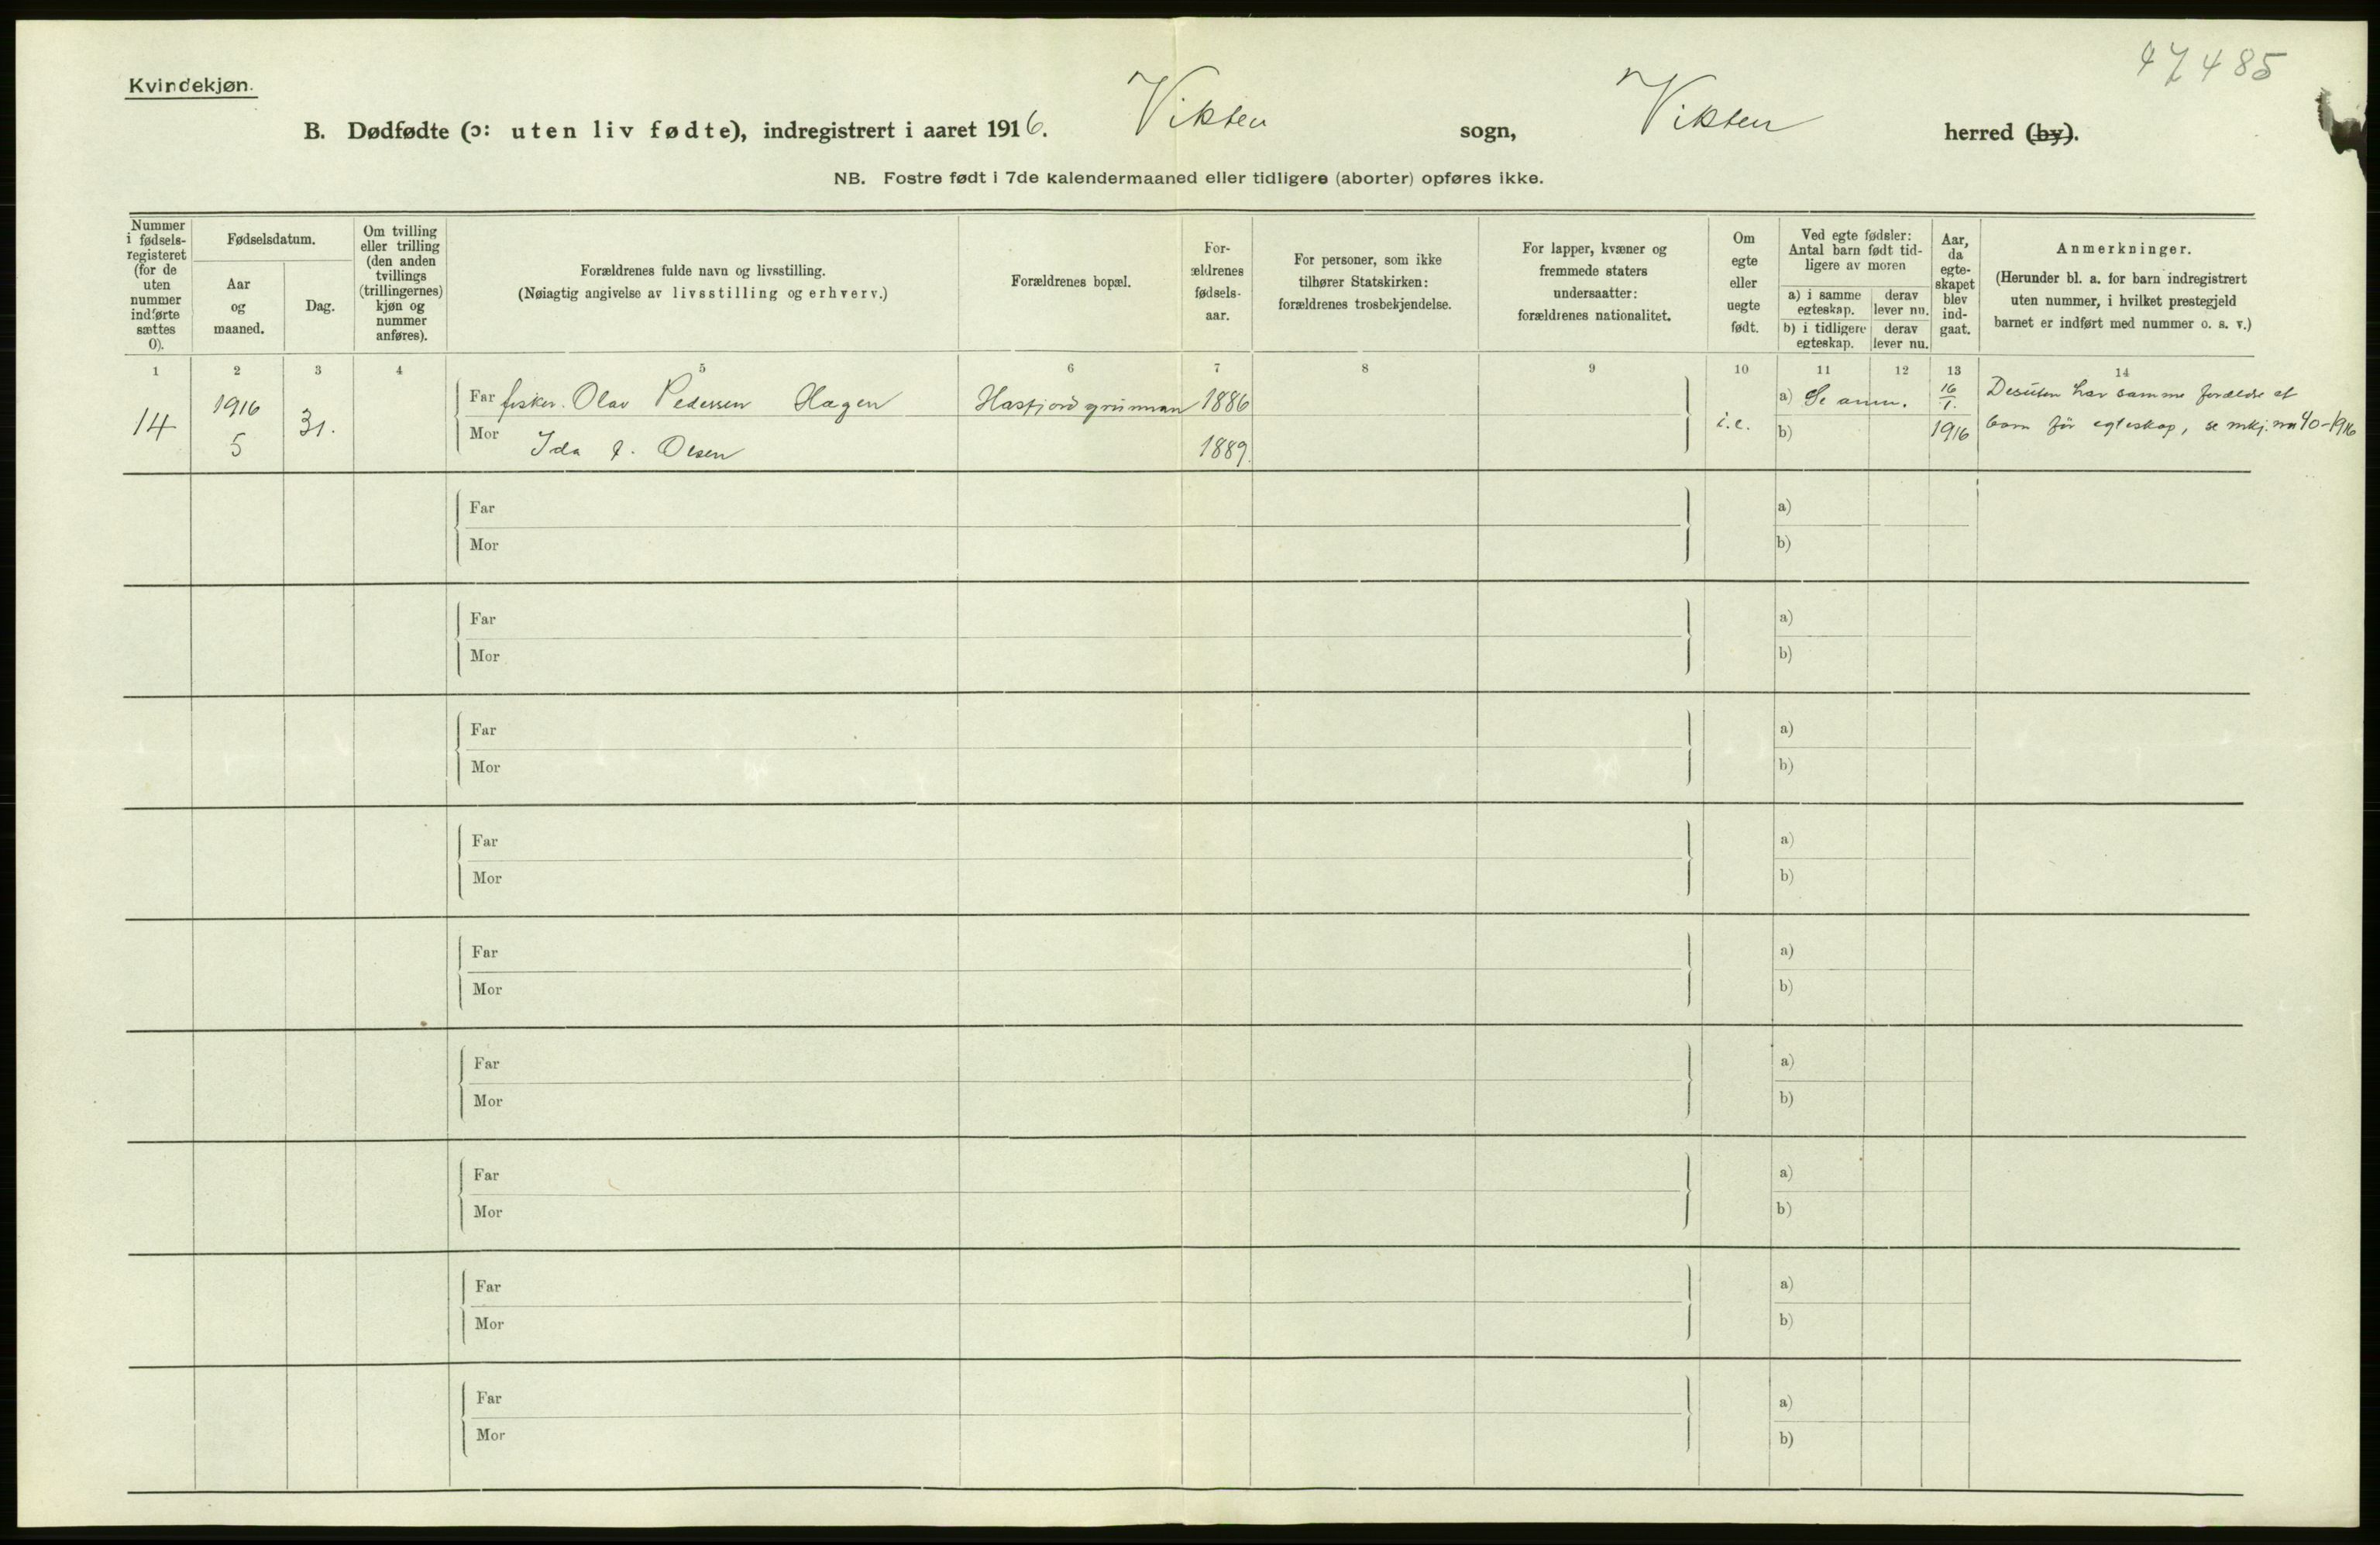 47485
Kvindekjøn.
B. Dødfødte (ɔ: uten liv fødte), indregistrert i aaret 1916. Vikten sogn, Vikten herred (by).
NB. Fostre født i 7de kalendermaaned eller tidligere (aborter) opføres ikke.
Nummer
i fødsels-
registeret
(for de
uten
nummer
indførte
sættes
0).
Fødselsdatum.
Aar
og
maaned.
Dag.
Om tvilling
eller trilling
(den anden
tvillings
(trillingernes)
kjøn og
nummer
anføres).
Forældrenes fulde navn og livsstilling.
(Nøiagtig angivelse av livsstilling og erhverv.)
Forældrenes bopæl.
For-
ældrenes
fødsels-
aar.
For personer, som ikke
tilhører Statskirken:
forældrenes trosbekjendelse.
For lapper, kvæner og
fremmede staters
undersaatter:
forældrenes nationalitet.
Om
egte
eller
uegte
født.
Ved egte fødsler:
Antal barn født tid-
ligere av moren
a) i samme
egteskap.
derav
lever nu.
b) i tidligere
egteskap.
derav
lever nu.
Aar,
da
egte-
skapet
blev
ind-
gaat.
Anmerkninger.
(Herunder bl. a. for barn indregistrert
uten nummer, i hvilket prestegjeld
barnet er indført med nummer o. s. v.)
1 2 3 4 5 6 7 8 9 10 11 12 13 14
14 1916 5 31.
Far fisker. Olav Pedersen Hagen Hasfjordgrunnan 1886
Mor Ida Olsen 1889.
i.e.
a) Se anm.
b)
16/1. 1916
Desuten har samme forældre et
barn før egteskap, se mkj. nr 40-1916
Far a)
Mor b)
Far a)
Mor b)
Far a)
Mor b)
Far a)
Mor b)
Far a)
Mor b)
Far a)
Mor b)
Far a)
Mor b)
Far a)
Mor b)
Far a)
Mor b)